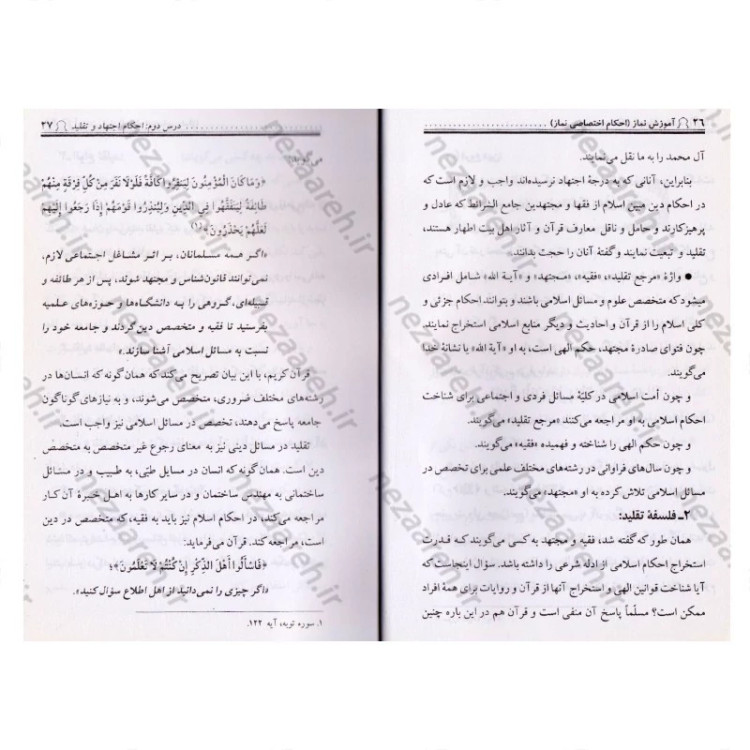 ۲۶ آموزش نماز (احکام اختصاصی نماز)
آل محمد را به ما نقل می‌نمایند.
بنابراین، آنانی که به درجهٔ اجتهاد نرسیده‌اند واجب و لازم است که
در احکام دین مبین اسلام از فقها و مجتهدین جامع الشرائط که عادل و
پرهیزکارند و حامل و ناقل معارف قرآن و آثار اهل بیت اطهار هستند،
تقلید و تبعیت نمایند و گفتهٔ آنان را حجت بدانند.
● واژهٔ «مرجع تقلید»، «فقیه»، «مجتهد» و «آیة الله» شامل افرادی
میشود که متخصص علوم و مسائل اسلامی باشند و بتوانند احکام جزئی و
کلی اسلام را از قرآن و احادیث و دیگر منابع اسلامی استخراج نمایند.
چون فتوای صادرهٔ مجتهد، حکم الهی است، به او «آیة الله» یا نشانهٔ خدا
می‌گویند.
و چون اُمت اسلامی در کلیّهٔ مسائل فردی و اجتماعی برای شناخت
احکام اسلامی به او مراجعه می‌کنند «مرجع تقلید» می‌گویند.
و چون حکم الهی را شناخته و فهمیده «فقیه» می‌گویند.
و چون سال‌های فراوانی در رشته‌های مختلف علمی برای تخصص در
مسائل اسلامی تلاش کرده به او «مجتهد» می‌گویند.
۲ـ فلسفهٔ تقلید:
همان طور که گفته شد، فقیه و مجتهد به کسی می‌گویند که قدرت
استخراج احکام اسلامی از ادلهٔ شرعی را داشته باشد. سؤال اینجاست که
آیا شناخت قوانین الهی و استخراج آنها از قرآن و روایات برای همهٔ افراد
ممکن است؟ مسلّماً پاسخ آن منفی است و قرآن هم در این باره چنین
درس دوم: احکام اجتهاد و تقلید ۲۷
می‌گوید:
﴿وَمَا كَانَ الْمُؤْمِنُونَ لِيَنفِرُوا كَافَّةً فَلَوْلَا نَفَرَ مِن كُلِّ فِرْقَةٍ مِنْهُمْ
طَائِفَةٌ لِيَتَفَقَّهُوا فِي الدِّينِ وَلِيُنذِرُوا قَوْمَهُمْ إِذَا رَجَعُوا إِلَيْهِمْ
لَعَلَّهُمْ يَحْذَرُونَ﴾(۱)
«اگر همه مسلمانان، بر اثر مشاغل اجتماعی لازم،
نمی‌توانند قانون‌شناس و مجتهد شوند، پس از هر طائفه و
قبیله‌ای، گروهی را به دانشگاه‌ها و حوزه‌های علمیه
بفرستید تا فقیه و متخصص دین گردند و جامعه خود را
نسبت به مسائل اسلامی آشنا سازند.»
قرآن کریم، با این بیان تصریح می‌کند که همان گونه که انسان‌ها در
رشته‌های مختلف ضروری، متخصص می‌شوند، و به نیازهای گوناگون
جامعه پاسخ می‌دهند، تخصص در مسائل اسلامی نیز واجب است.
تقلید در مسائل دینی نیز به معنای رجوع غیر متخصص به متخصص
دین است. همان گونه که انسان در مسایل طبّی، به طبیب و در مسائل
ساختمانی به مهندس ساختمان و در سایر کارها به اهل خبرهٔ آن کار
مراجعه می‌کند، در احکام اسلام نیز باید به فقیه، که متخصص در دین
است، مراجعه کند. قرآن می‌فرماید:
﴿فَاسْأَلُوا أَهْلَ الذِّكْرِ إِن كُنتُمْ لَا تَعْلَمُونَ﴾؛
«اگر چیزی را نمی‌دانید از اهل اطلاع سؤال کنید.»
۱. سوره توبه، آیه ۱۲۲.
nezaareh.ir